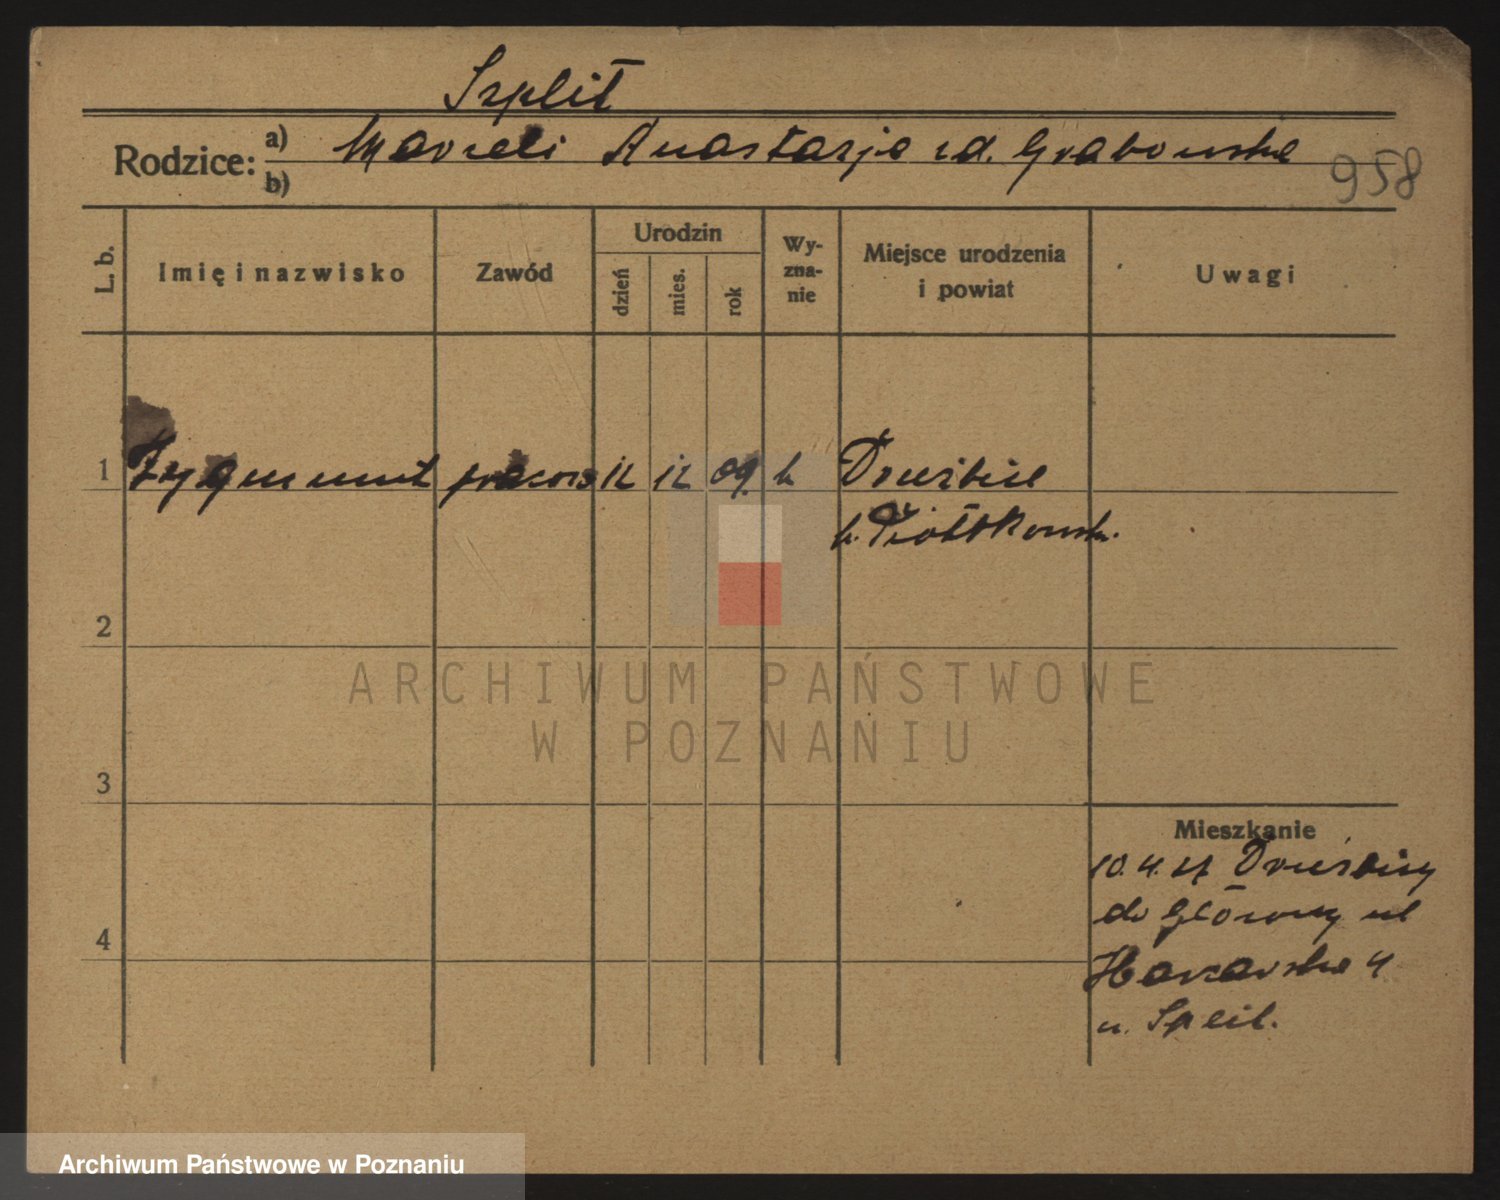 Szplit
Rodzice: a) Marceli Anastazja zd. Grabowska
b)
958
L. b.
Imię i nazwisko
Zawód
Urodzin
dzień
mies.
rok
Wy-
zna-
nie
Miejsce urodzenia
i powiat
Uwagi
1 Zygmunt 12 12 09 k Drużbice
p. Piotrkowsk.
2
3
4
Mieszkanie
10.4. Drużbicy
do Główny ul
4
u. Split.
ARCHIWUM PAŃSTWOWE
W POZNANIU
Archiwum Państwowe w Poznaniu